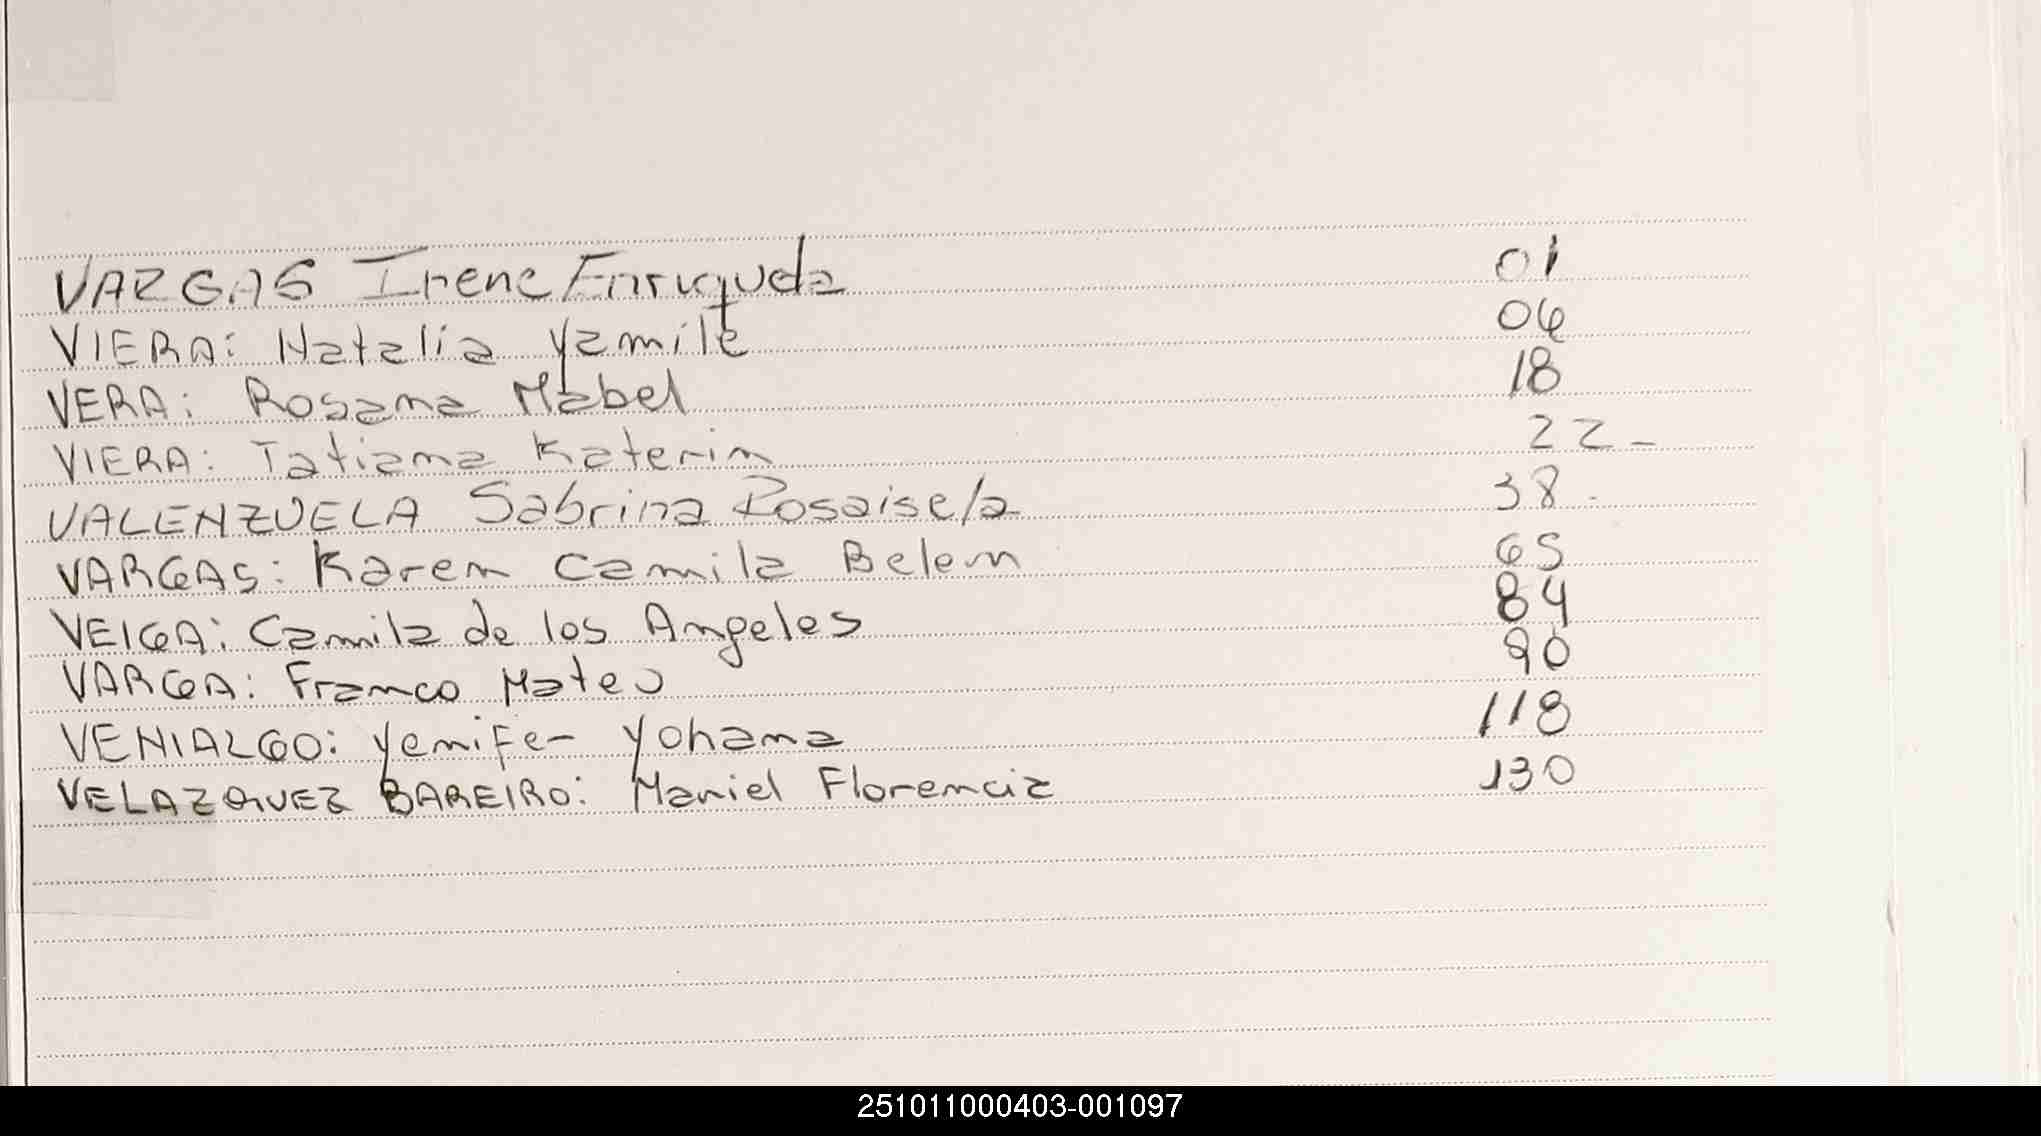 VARGAS Irene Enriqueda 01
VIERA: Natalia Yamile 06
VERA: Rosana Mabel 18
VIERA: Tatiana Katerin 22-
VALENZUELA Sabrina Rosaisela 38.
VARGAS: Karen Camila Belen 65
VEIGA: Camila de los Angeles 84
VARGA: Franco Mateo 90
VENIALGO: Yenifer Yohana 118
VELAZQUEZ BAREIRO: Mariel Florencia 130
251011000403-001097